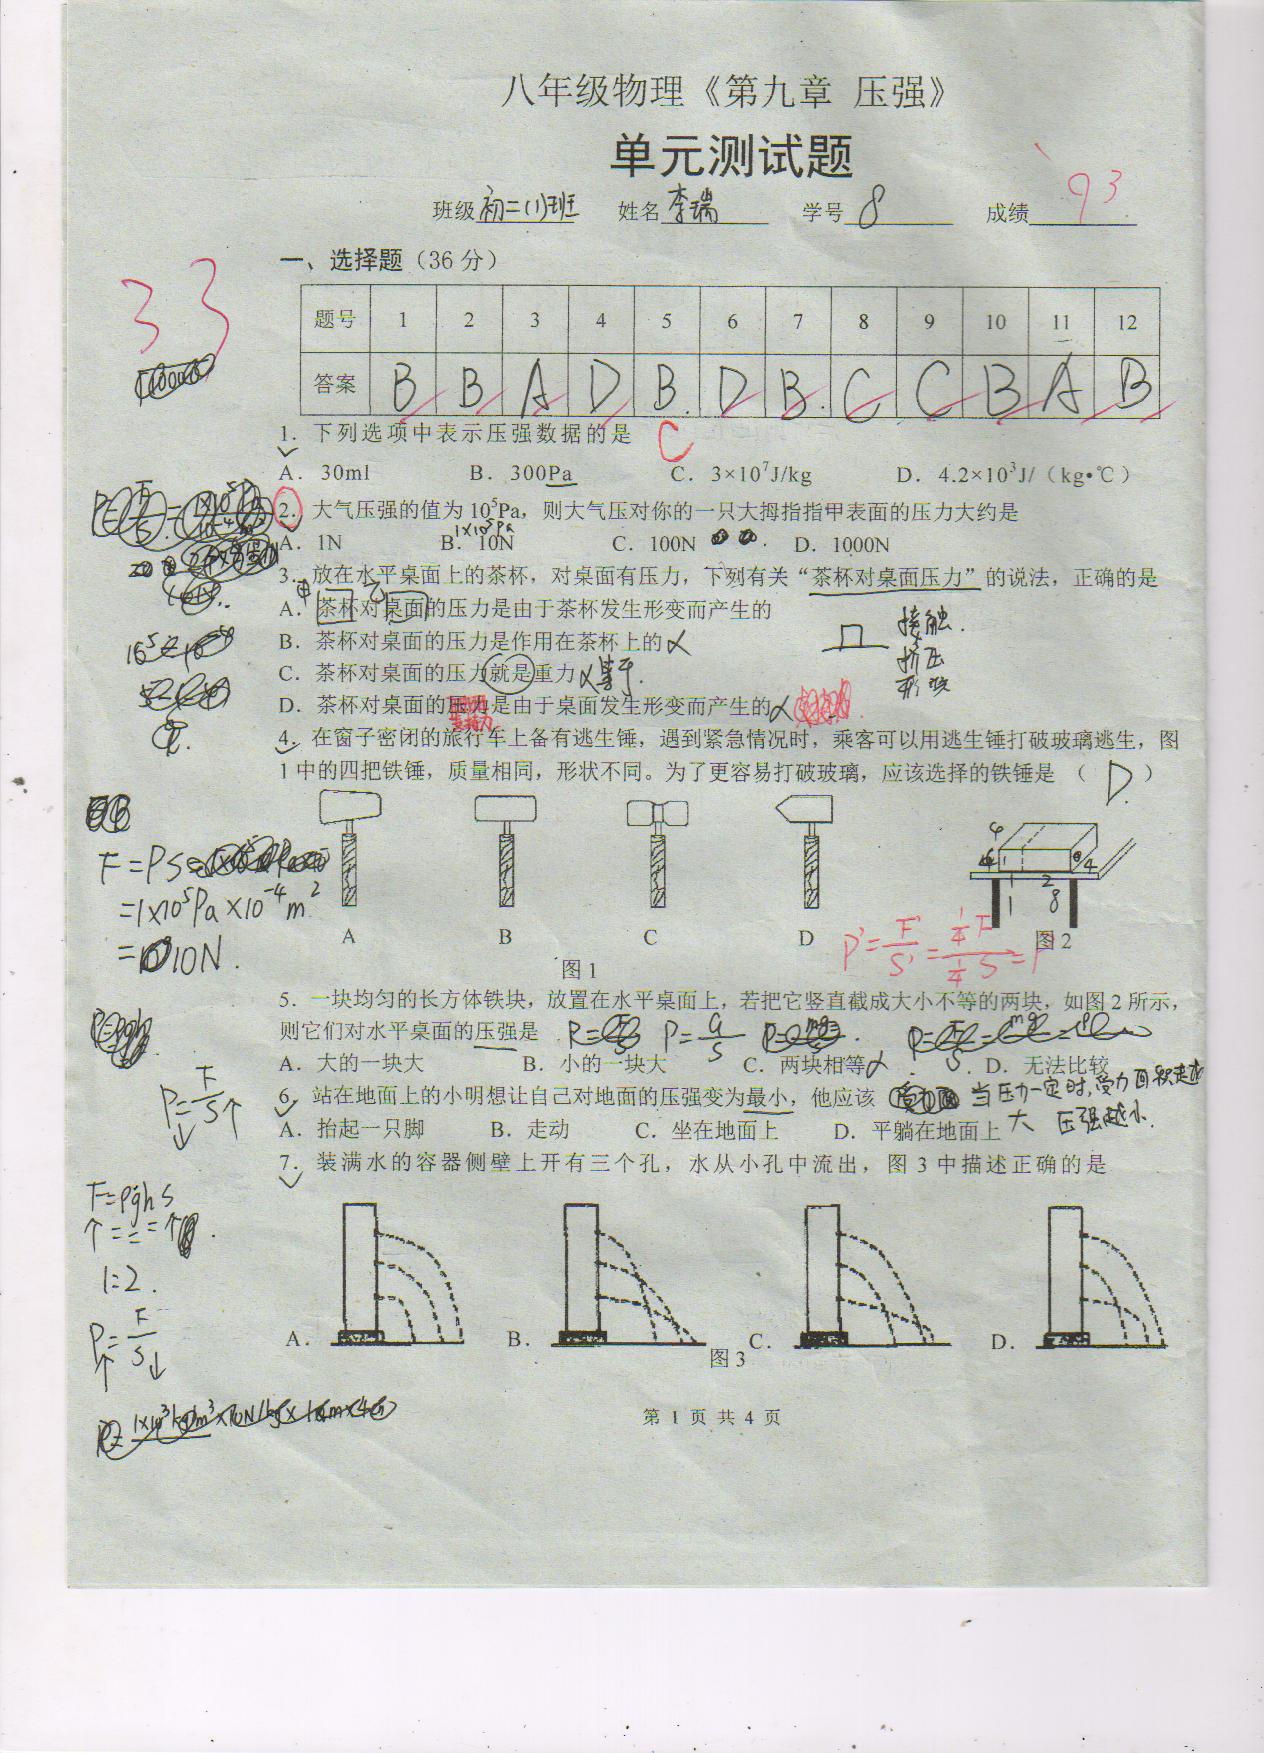 八年级物理《第九章 压强》
单元测试题
班级 初二(1)班 姓名 李瑞 学号 8 成绩 93
33
一、选择题（36 分）
题号 1 2 3 4 5 6 7 8 9 10 11 12
答案 B B A D B. D B. C C B A B
1．下列选项中表示压强数据的是 C
A．30ml B．300Pa C．3×10⁷J/kg D．4.2×10³J/（kg•℃）
2．大气压强的值为 10⁵Pa，则大气压对你的一只大拇指指甲表面的压力大约是
1×10⁵Pa
A．1N B．10N C．100N D．1000N
3．放在水平桌面上的茶杯，对桌面有压力，下列有关“茶杯对桌面压力”的说法，正确的是
甲 乙
A．茶杯对桌面的压力是由于茶杯发生形变而产生的
接触.
B．茶杯对桌面的压力是作用在茶杯上的
挤压
C．茶杯对桌面的压力就是重力 等于.
形变
D．茶杯对桌面的压力是由于桌面发生形变而产生的
支持力
4．在窗子密闭的旅行车上备有逃生锤，遇到紧急情况时，乘客可以用逃生锤打破玻璃逃生，图
1 中的四把铁锤，质量相同，形状不同。为了更容易打破玻璃，应该选择的铁锤是（ D. ）
F=PS
=1×10⁵Pa×10⁻⁴m²
=10N.
A B C D
4 4 4 1 2 1 8
图 1
图 2
P'=F'/S'=¼F/¼S=P
5．一块均匀的长方体铁块，放置在水平桌面上，若把它竖直截成大小不等的两块，如图 2 所示，
则它们对水平桌面的压强是 P=G/S
A．大的一块大 B．小的一块大 C．两块相等 D．无法比较
P↓=F/S↑
6．站在地面上的小明想让自己对地面的压强变为最小，他应该 当压力一定时,受力面积越
A．抬起一只脚 B．走动 C．坐在地面上 D．平躺在地面上 大 压强越小.
7．装满水的容器侧壁上开有三个孔，水从小孔中流出，图 3 中描述正确的是
F=ρghS
↑ = = = ↑
1:2.
P↑=F/S↓
A． B． C． D．
图 3
第 1 页 共 4 页